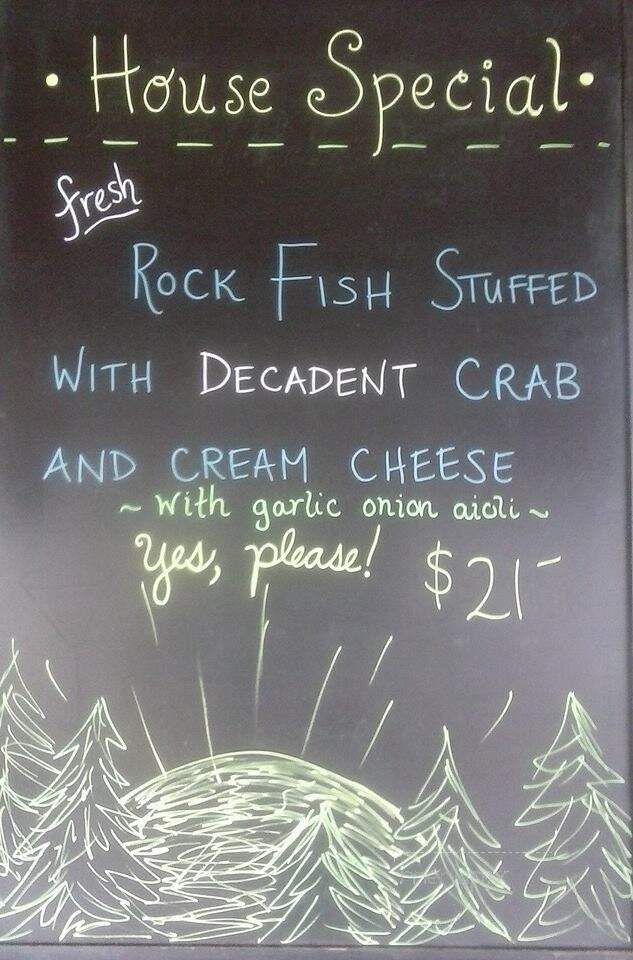 · House Special ·
fresh
ROCK FISH STUFFED
WITH DECADENT CRAB
AND CREAM CHEESE
~ with garlic onion aioli ~
Yes, please! $21-